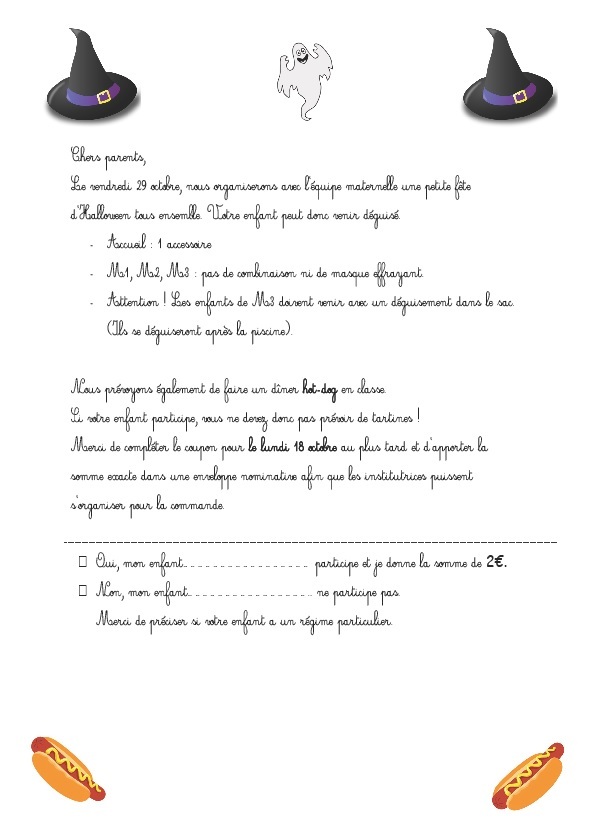 Chers parents,
Le vendredi 29 octobre, nous organiserons avec l'équipe maternelle une petite fête
d'Halloween tous ensemble. Votre enfant peut donc venir déguisé.
- Accueil : 1 accessoire
- M1, M2, M3 : pas de combinaison ni de masque effrayant.
- Attention ! Les enfants de M3 doivent venir avec un déguisement dans le sac.
(Ils se déguiseront après la piscine).
Nous prévoyons également de faire un dîner hot-dog en classe.
Si votre enfant participe, vous ne devez donc pas prévoir de tartines !
Merci de compléter le coupon pour le lundi 18 octobre au plus tard et d'apporter la
somme exacte dans une enveloppe nominative afin que les institutrices puissent
s'organiser pour la commande.
□ Oui, mon enfant__________________ participe et je donne la somme de 2€.
□ Non, mon enfant__________________ ne participe pas.
Merci de préciser si votre enfant a un régime particulier.